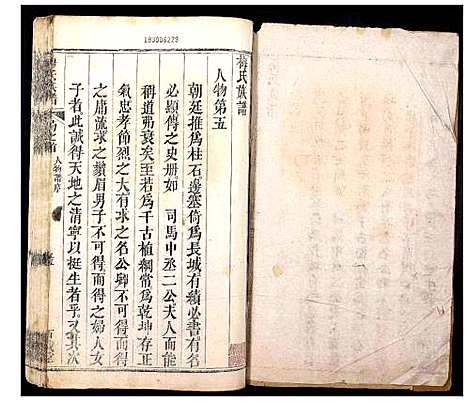 180006229
梅氏族譜
人物第五
朝廷推為柱石邊塞倚為長城有績必書有名
必顯傳之史册如 司馬中丞二公夫人而能
稱道弗衰矣至若為千古植綱常為乾坤存正
氣忠孝節烈之大有求之名公卿不可得而得
之庸流求之鬚眉男子不可得而得之婦人女
子者此誠得天地之清寧以挺生者乎又其次
人物譜序